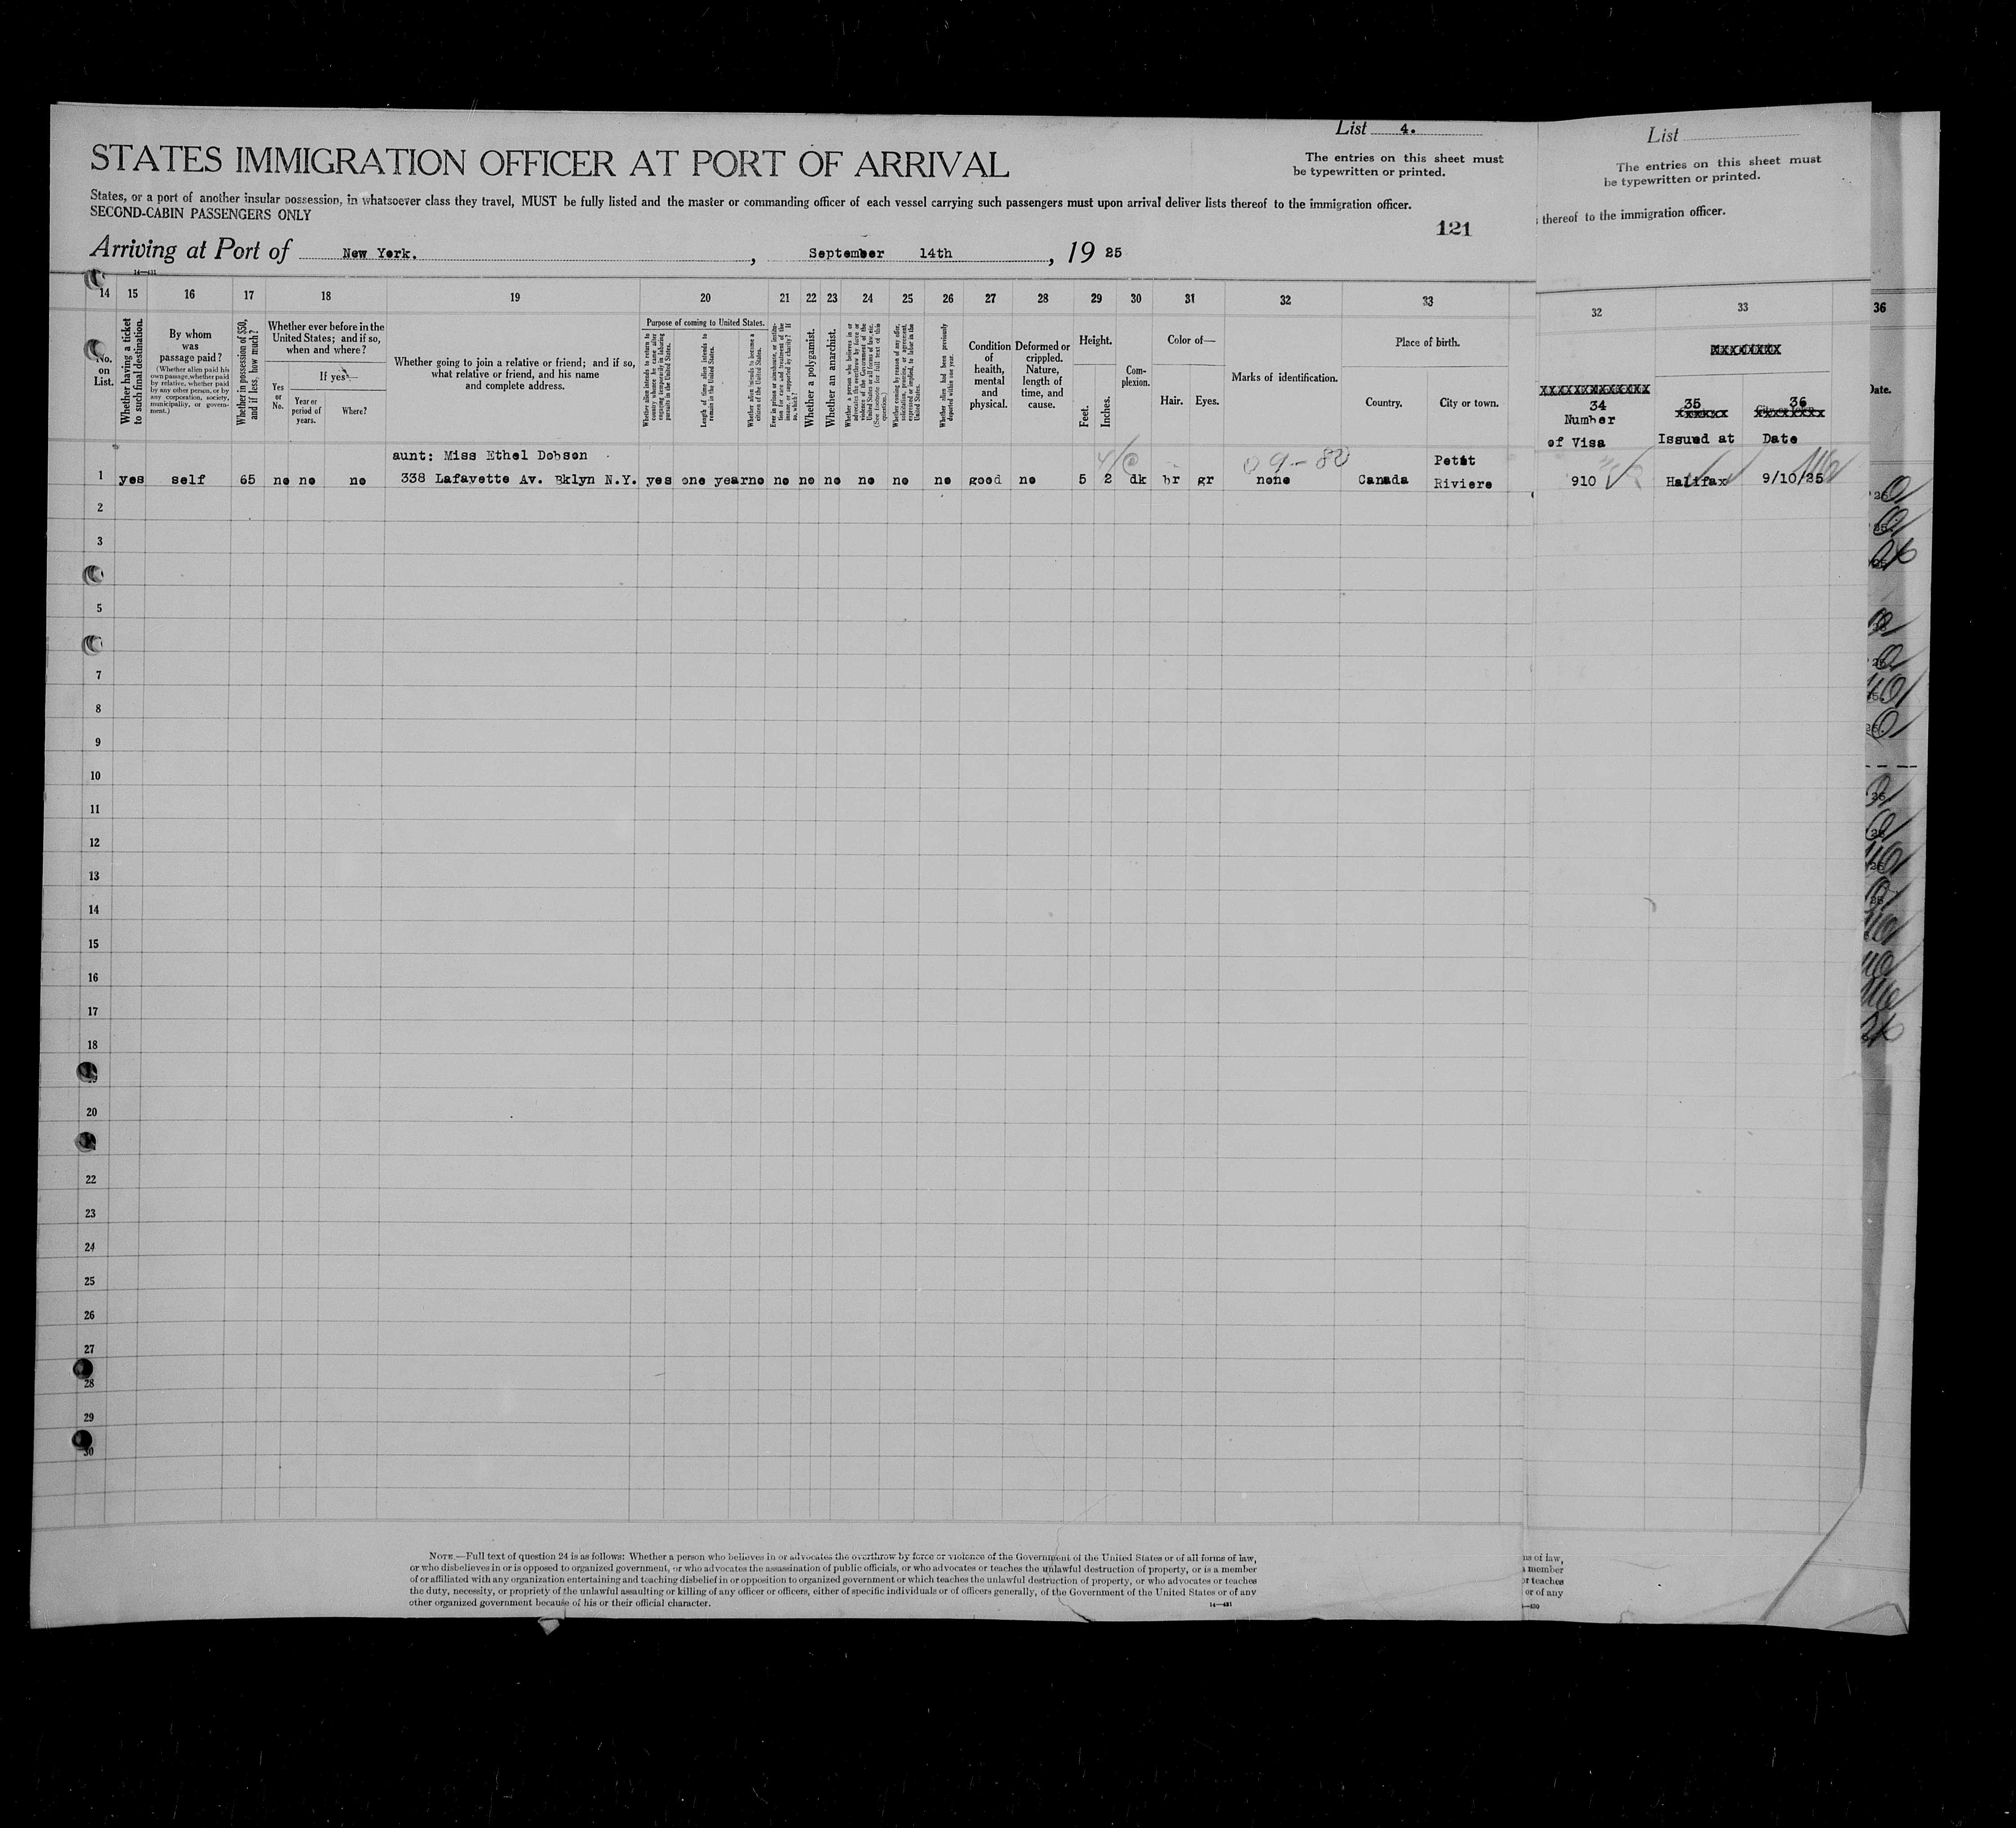 List 4.
STATES IMMIGRATION OFFICER AT PORT OF ARRIVAL
The entries on this sheet must
be typewritten or printed.
States, or a port of another insular possession, in whatsoever class they travel, MUST be fully listed and the master or commanding officer of each vessel carrying such passengers must upon arrival deliver lists thereof to the immigration officer.
SECOND-CABIN PASSENGERS ONLY
121
Arriving at Port of New York. , September 14th , 19 25
14—431
14 15 16 17 18 19 20 21 22 23 24 25 26 27 28 29 30 31 32 33
No. on List.
Whether having a ticket to such final destination.
By whom was passage paid?
(Whether alien paid his own passage, whether paid by relative, whether paid by any other person, or by any corporation, society, municipality, or government.)
Whether in possession of $50, and if less, how much?
Whether ever before in the United States; and if so, when and where?
Yes or No.
If yes—
Year or period of years.
Where?
Whether going to join a relative or friend; and if so, what relative or friend, and his name and complete address.
Purpose of coming to United States.
Whether alien intends to return to country whence he came after engaging temporarily in laboring pursuits in the United States.
Length of time alien intends to remain in the United States.
Whether alien intends to become a citizen of the United States.
Ever in prison or almshouse, or institution for care and treatment of the insane, or supported by charity? If so, which?
Whether a polygamist.
Whether an anarchist.
Whether a person who believes in or advocates the overthrow by force or violence of the Government of the United States or all forms of law, etc. (See footnote for full text of this question.)
Whether coming by reason of any offer, solicitation, promise, or agreement, expressed or implied, to labor in the United States.
Whether alien had been previously deported within one year.
Condition of health, mental and physical.
Deformed or crippled. Nature, length of time, and cause.
Height.
Feet. Inches.
Complexion.
Color of—
Hair. Eyes.
Marks of identification.
Place of birth.
Country. City or town.
aunt: Miss Ethel Dobson
4/C 09-80
Petit
1 yes self 65 no no no 338 Lafayette Av. Bklyn N.Y. yes one year no no no no no no no good no 5 2 dk br gr none Canada Riviere
2
3
5
7
8
9
10
11
12
13
14
15
16
17
18
20
22
23
24
25
26
27
28
29
30
NOTE.—Full text of question 24 is as follows: Whether a person who believes in or advocates the overthrow by force or violence of the Government of the United States or of all forms of law,
or who disbelieves in or is opposed to organized government, or who advocates the assassination of public officials, or who advocates or teaches the unlawful destruction of property, or is a member
of or affiliated with any organization entertaining and teaching disbelief in or opposition to organized government or which teaches the unlawful destruction of property, or who advocates or teaches
the duty, necessity, or propriety of the unlawful assaulting or killing of any officer or officers, either of specific individuals or of officers generally, of the Government of the United States or of any
other organized government because of his or their official character.
14—431
List
The entries on this sheet must
be typewritten or printed.
thereof to the immigration officer.
32 33
XXXXXXXX
XXXXXXXXXXXXX
34 35 36
Number
of Visa Issued at Date
910 Halifax 9/10/25
ns of law,
member
or teaches
or of any
—430
36
Date.